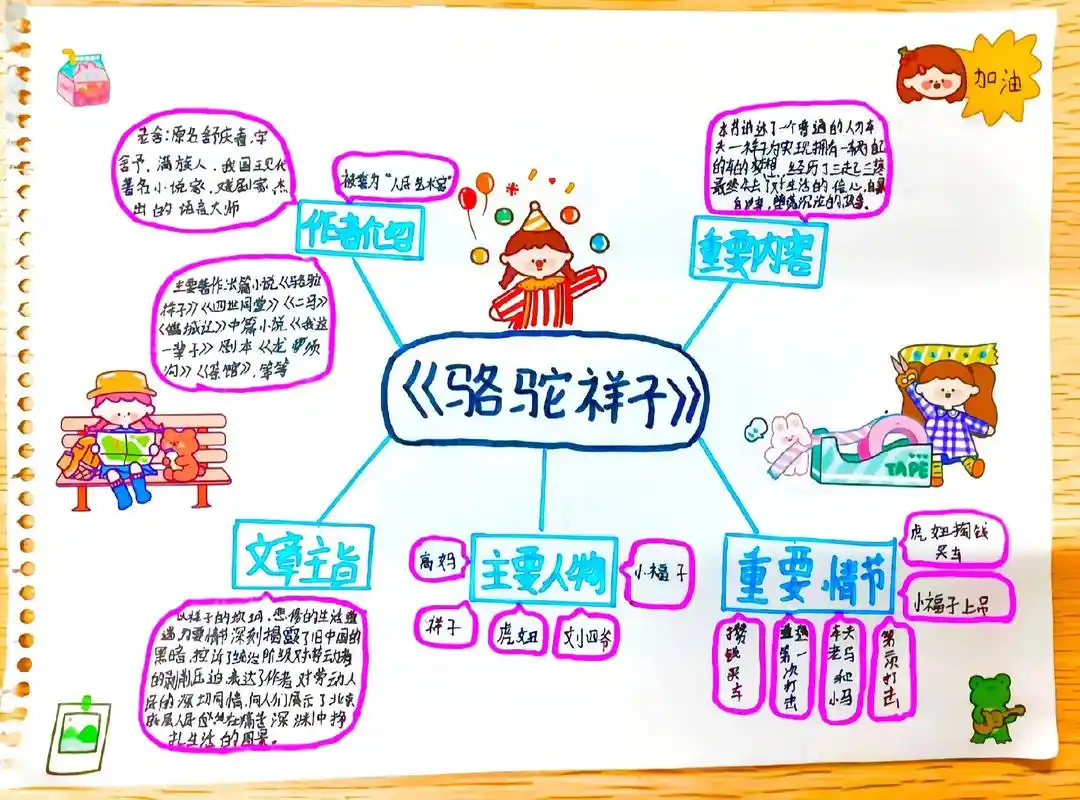 加油
老舍:原名舒庆春,字
舍予,满族人,我国现代
著名小说家,戏剧家,杰
出的语言大师
被誉为"人民艺术家"
作者介绍
主要著作:长篇小说《骆驼
祥子》《四世同堂》《二马》
《猫城记》中篇小说《我这
一辈子》剧本《龙须
沟》《茶馆》,等等
本书讲述了一个普通的人力车
夫—祥子为实现拥有一辆自己
的车的梦想,经历了三起三落
最终失去了对生活的信心,自暴
自弃,堕落沉沦的故事。
重要内容
《骆驼祥子》
TAPE
文章主旨
以祥子的坎坷,悲惨的生活遭
遇为要情深刻揭露了旧中国的
黑暗,控诉了统治阶级对劳动者
的剥削压迫表达了作者对劳动人
民的深切同情,向人们展示了北京
底层人民在痛苦深渊中挣
扎生活的图景。
主要人物
高妈
祥子
虎妞
小福子
重要情节
虎妞掏钱
买车
小福子上吊
攒钱买车
遭遇第一次打击
车夫老马和小马
第二次打击